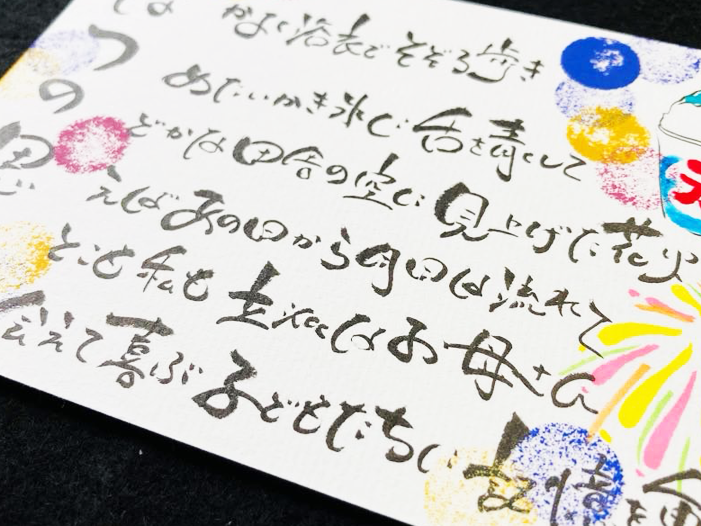 なかよく浴衣でそぞろ歩き
つめたいかき氷に舌を青くして
のどかな田舎の空に見上げた花火
思えばあの日から月日は流れて
いとこも私も立派なお母さん
えて喜ぶ子どもたちに
情を